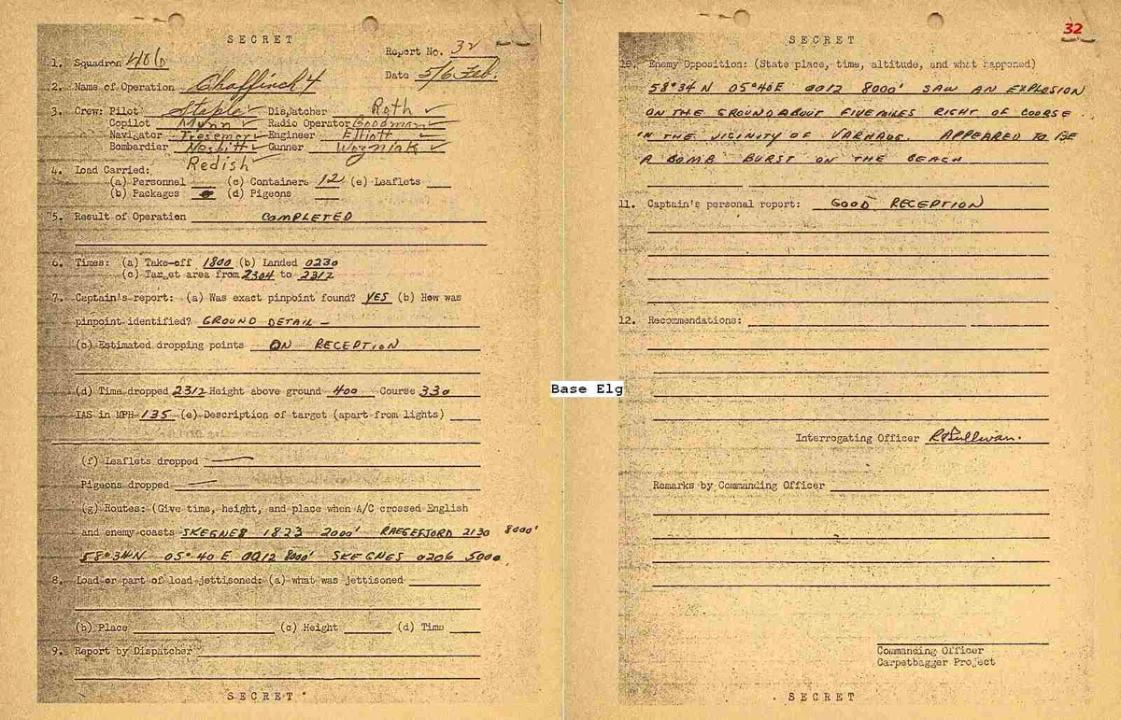 SECRET
Report No. 32
1. Squadron 406
Date 5/6 Feb.
2. Name of Operation Chaffinch 4
3. Crew: Pilot Staple Dispatcher Roth
Copilot Munn Radio Operator Goodman
Navigator Tresemer Engineer Elliott
Bombardier Nesbitt Gunner Wozniak
Redish
4. Load Carried:
(a) Personnel (c) Containers 12 (e) Leaflets
(b) Packages (d) Pigeons
5. Result of Operation COMPLETED
6. Times: (a) Take-off 1800 (b) Landed 0230
(c) Target area from 2304 to 2312
7. Captain's report: (a) Was exact pinpoint found? YES (b) How was
pinpoint identified? GROUND DETAIL -
(c) Estimated dropping points ON RECEPTION
(d) Time dropped 2312 Height above ground 400 Course 330
IAS in MPH 135 (e) Description of target (apart from lights)
(f) Leaflets dropped
Pigeons dropped
(g) Routes: (Give time, height, and place when A/C crossed English
and enemy coasts SKEGNES 1823 2000' RAEGEFJORD 2130 8000'
58°34N 05°40E 0012 8000' SKEGNES 0206 5000
8. Load or part of load jettisoned: (a) what was jettisoned
(b) Place (c) Height (d) Time
9. Report by Dispatcher
SECRET
Base Elg
32
SECRET
10. Enemy Opposition: (State place, time, altitude, and what happened)
58°34 N 05°46E 0012 8000' SAW AN EXPLOSION
ON THE GROUND ABOUT FIVE MILES RIGHT OF COURSE
IN THE VICINITY OF VARHAUG. APPEARED TO BE
A BOMB BURST ON THE BEACH
11. Captain's personal report: GOOD RECEPTION
12. Recommendations:
Interrogating Officer R Sullivan.
Remarks by Commanding Officer
Commanding Officer
Carpetbagger Project
SECRET